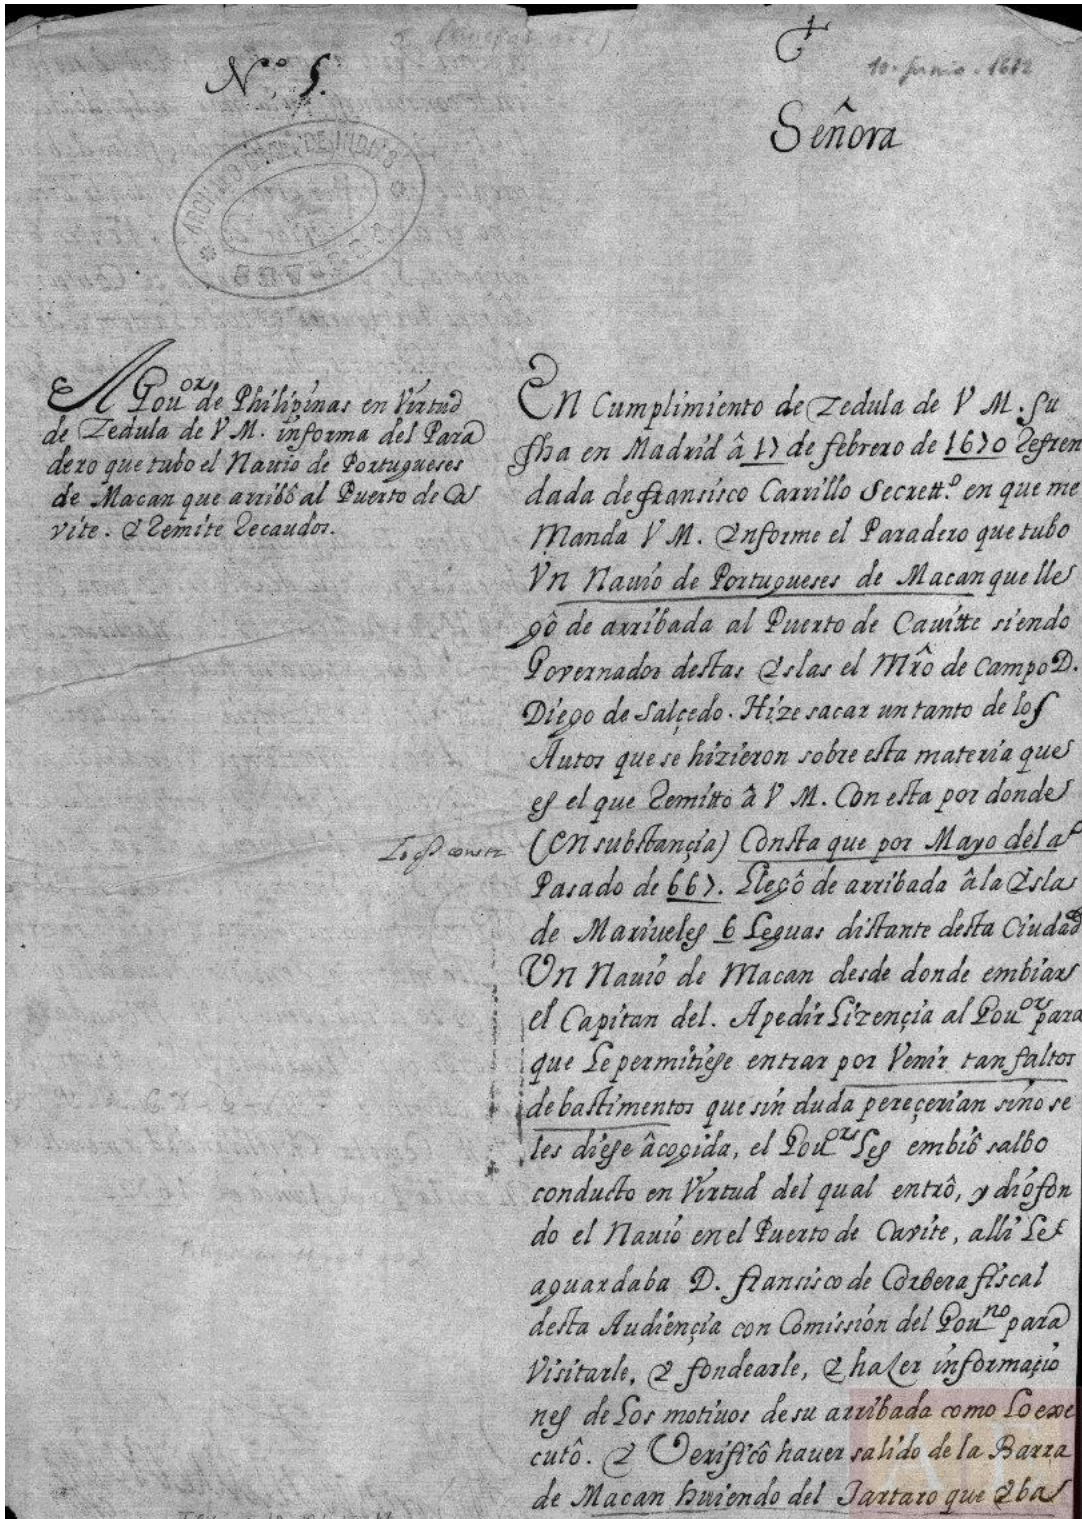 Nº 5.
10. Junio. 1672
Señora
ARCHIVO GRAL DE INDIAS
El Gouor. de Philipinas en Virtud
de Zedula de V M. informa del Para
dero que tubo el Nauio de Portugueses
de Macan que arribô al Puerto de Ca
vite. Y Remite Recaudos.
En Cumplimiento de Zedula de V M. Su
fha en Madrid â 17 de febrero de 1670 Refren
dada de fransisco Carrillo Secrett.º en que me
Manda V M. Informe el Paradero que tubo
Vn Nauio de Portugueses de Macan que lle
gô de arribada al Puerto de Cauitte siendo
Governador destas Yslas el Mrô de Campo D.
Diego de Salçedo. Hize sacar un tanto de los
Autos que se hizieron sobre esta materia que
es el que Remitto â V M. Con esta por donde
(En substançia) Consta que por Mayo del aº
Lo q consta
Pasado de 667. Llegô de arribada âla Ysla
de Mariueles 6 Leguas distante desta Ciudad
Un Nauio de Macan desde donde embiar
el Capitan del. Apedir Lizençia al Gouor. para
que Le permitiese entrar por Venir tan faltos
de bastimentos que sin duda pereçerian sino se
les diese âcogida, el Gouor. Les embiô salbo
conducto en Virtud del qual entrô, y diô fon
do el Nauio en el Puerto de Cavite, alli Le
aguardaba D. fransisco de Corbera fiscal
desta Audiençia con Comission del Gouno para
Visitarle, Y fondearle, Y hazer informaçio
nes de Los motiuos de su arribada como Lo exe
cutô. Y Verificô hauer salido de la Barra
de Macan huiendo del Tartaro que Yba